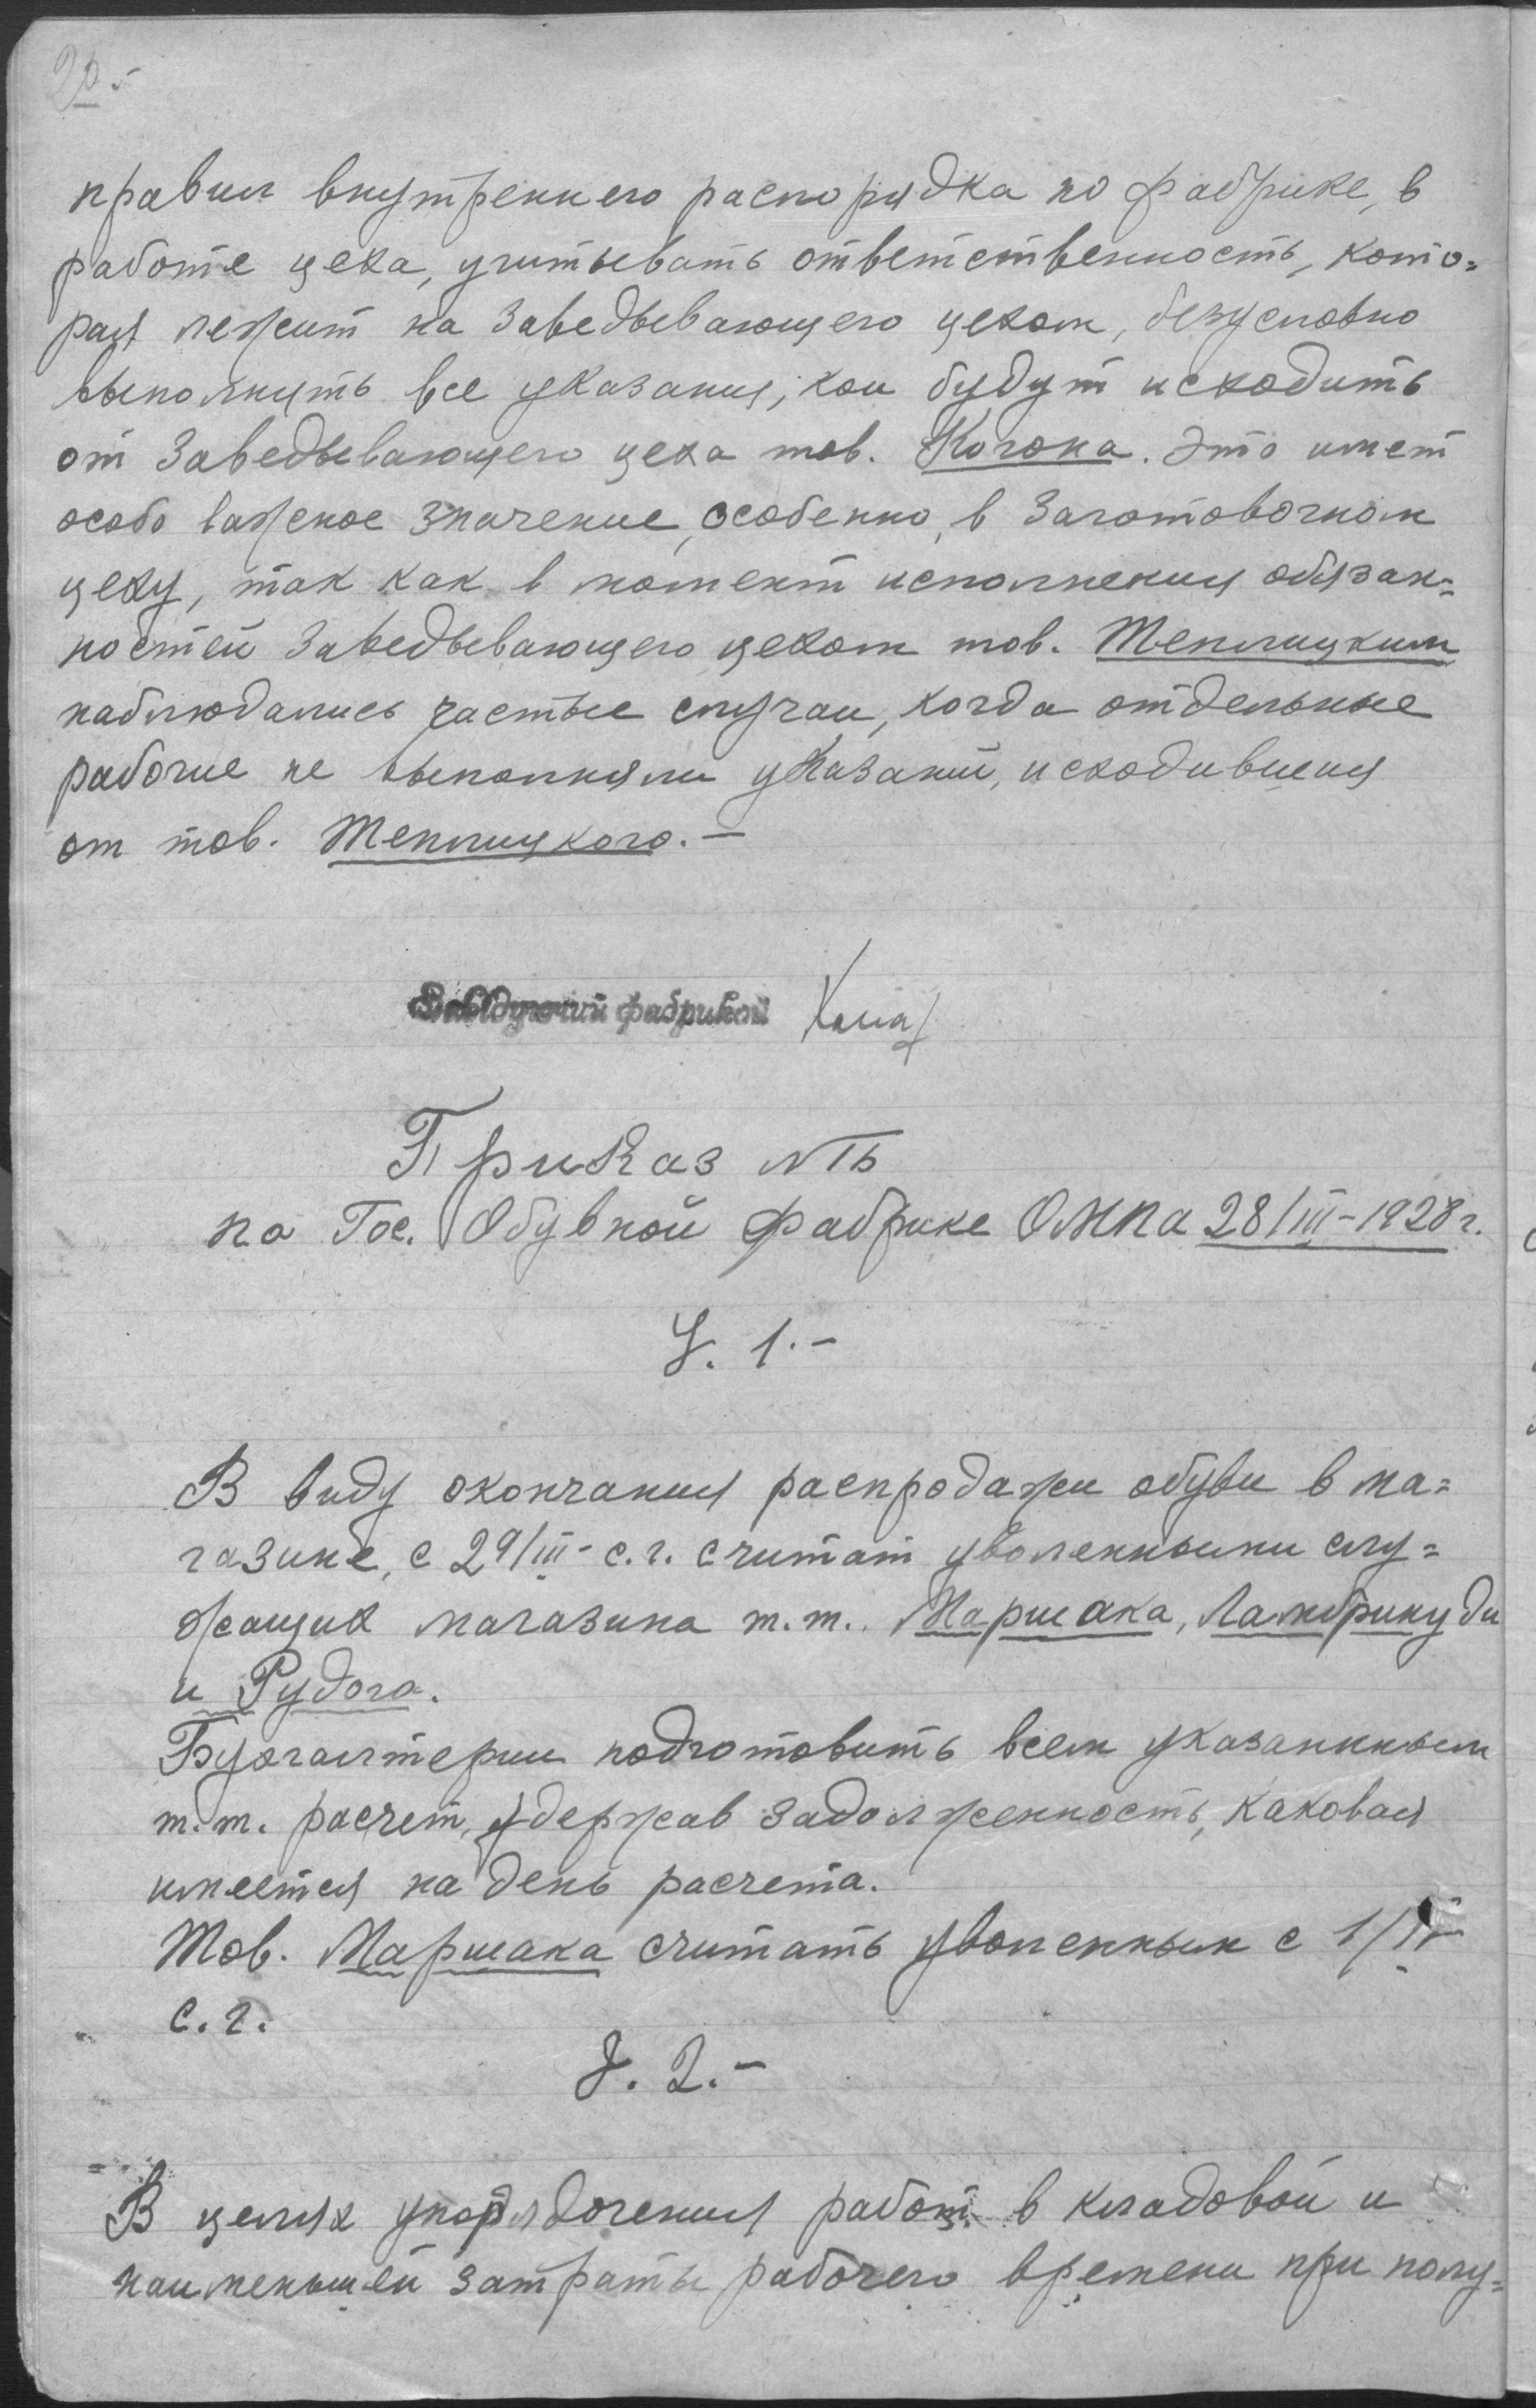 20.
правил внутреннего распорядка по фабрике, в
работе цеха, учитывать ответственность, кото=
рая лежит на Заведывающего цехом, безусловно
выполнять все указания, кои будут исходить
от Заведывающего цеха тов. Когона. Это имет
особо важное значение, особенно, в Заготовочном
цеху, так как в момент исполнения обязан=
ностей Заведывающего цехом тов. Теплицким
наблюдались частые случаи, когда отдельные
рабочие не выполняли указаний, исходившия
от тов. Теплицкого.—
Заведующий фабрикой
Приказ №
по Гос. Обувной Фабрике ОМПа 28/III-1928 г.
§. 1.-
В виду окончания распродажи обуви в ма=
газине, с 29/III- с.г. считат уволенными слу=
жащих магазина т.т. Маршака, Ламбринуди
и Рудого.
Бухгалтерии подготовить всем указанным
т.т. расчет, удержав задолженность, каковая
имеется на день расчета.
Тов. Маршака считать уволенным с 1/IV
с.г.
§. 2.-
В целях упорядочения работ в кладовой и
наименьшей затраты рабочего времени при полу=